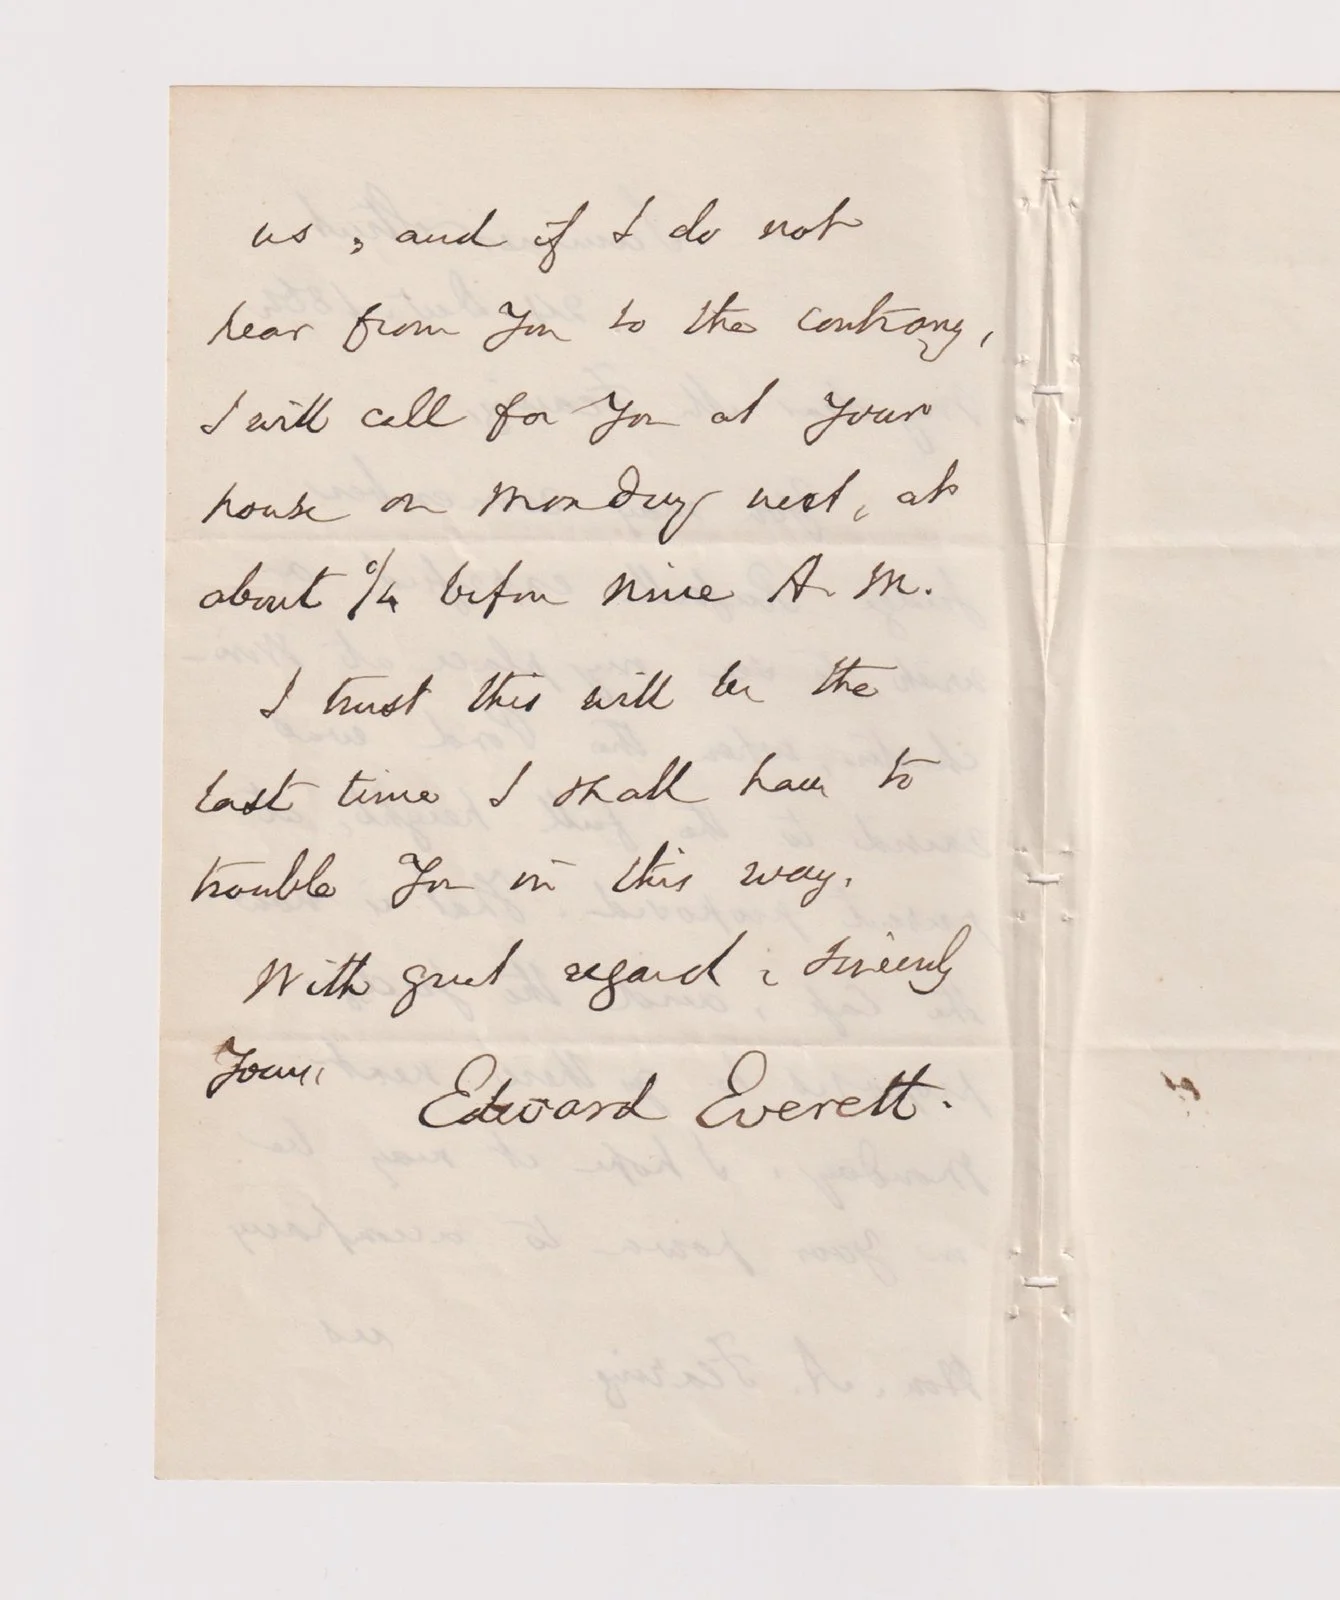 us, and if I do not
hear from You to the contrary,
I will call for You at Your
house on Monday next, at
about 1/4 before nine A. M.
I trust this will be the
last time I shall have to
trouble You in this way.
With great regard, sincerely
Yours,
Edward Everett.